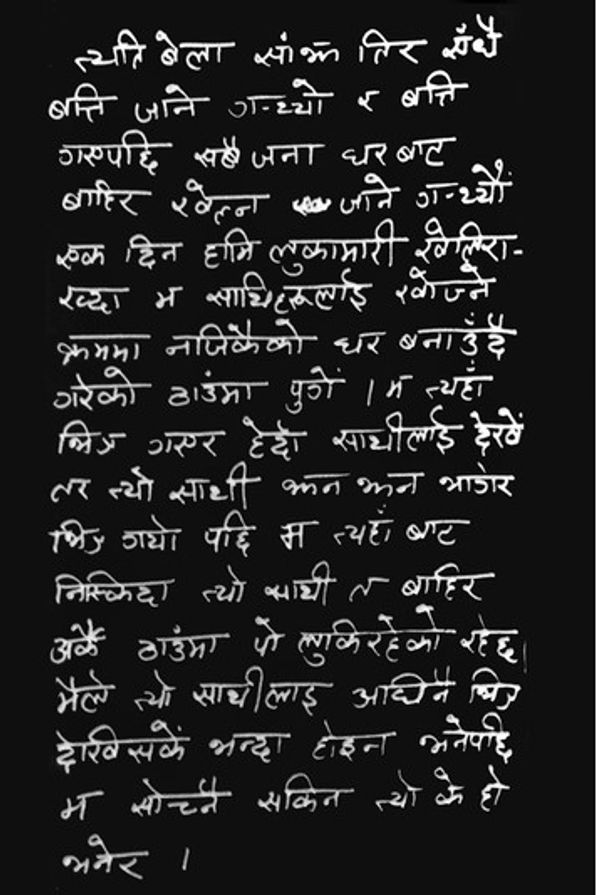 त्यति बेला सांझ तिर सँधै
बत्ति जाने ग-थ्यो र बत्ति
गएपछि सबै जना घर बाट
बाहिर खेल्न जाने ग-थ्यौं
एक दिन हामि लुकामारी खेलिरा-
ख्दा म साथिहरूलाई खोज्ने
क्रममा नजिकैको घर बनाउँदै
गरेको ठाउंमा पुगें । म त्यहाँ
भित्र गएर हेर्दा साथीलाई देखें
तर त्यो साथी झन झन भागेर
भित्र गयो पछि म त्यहाँ बाट
निस्किदा त्यो साथी त बाहिर
अर्कै ठाउंमा पो लुकिरहेको रहेछ।
मैले त्यो साथीलाइ अघिनै भित्र
देखिसकें भन्दा होइन भनेपछि
म सोच्नै सकिन त्यो के हो
भनेर ।